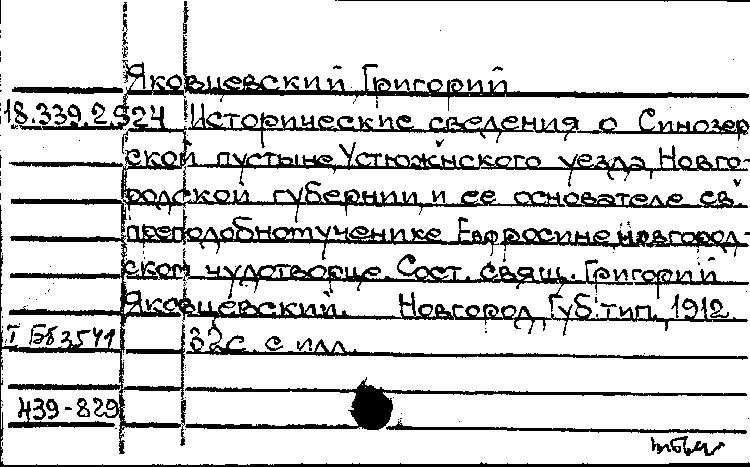 Яковцевский, Григорий
18.339.2.924 Исторические сведения о Синозер-
ской пустыне, Устюжнского уезда, Новго-
родской губернии, и ее основателе св.
преподобномученике Евфросине, новгород-
ском чудотворце. Сост. свящ. Григорий
Яковцевский. Новгород, Губ. тип., 1912.
32с. с илл.
439-829